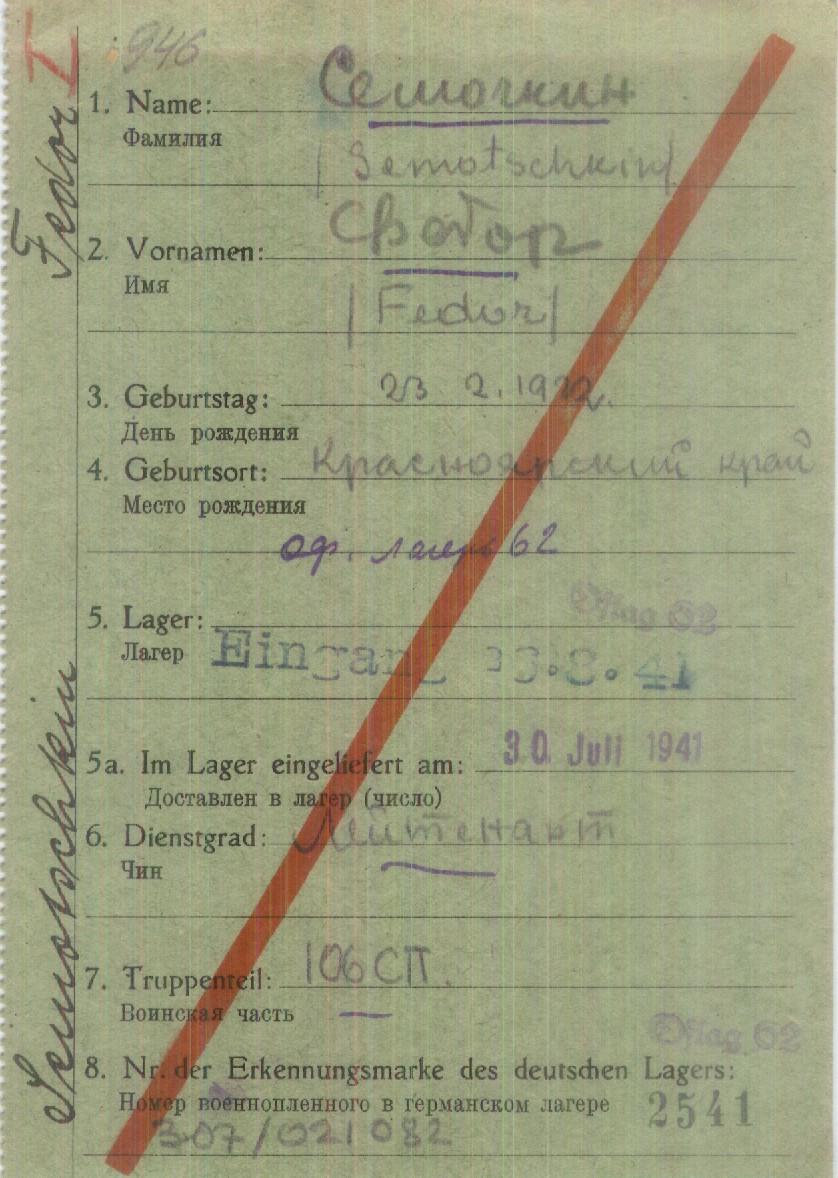 I
946
1. Name: Семочкин
Фамилия
/Semotschkin/
2. Vornamen: Федор
Имя
/Fedor/
3. Geburtstag: 23 2. 1922.
День рождения
4. Geburtsort: Красноярский край
Место рождения
оф. лагерь 62
Oflag 62
5. Lager:
Лагер Eingang 8.41
5a. Im Lager eingeliefert am: 30. Juli 1941
Доставлен в лагер (число)
6. Dienstgrad: Лейтенант
Чин
7. Truppenteil: 106 СП.
Воинская часть
Oflag 62
8. Nr. der Erkennungsmarke des deutschen Lagers:
Номер военнопленного в германском лагере 2541
307/021082
Semotschkin Fedor